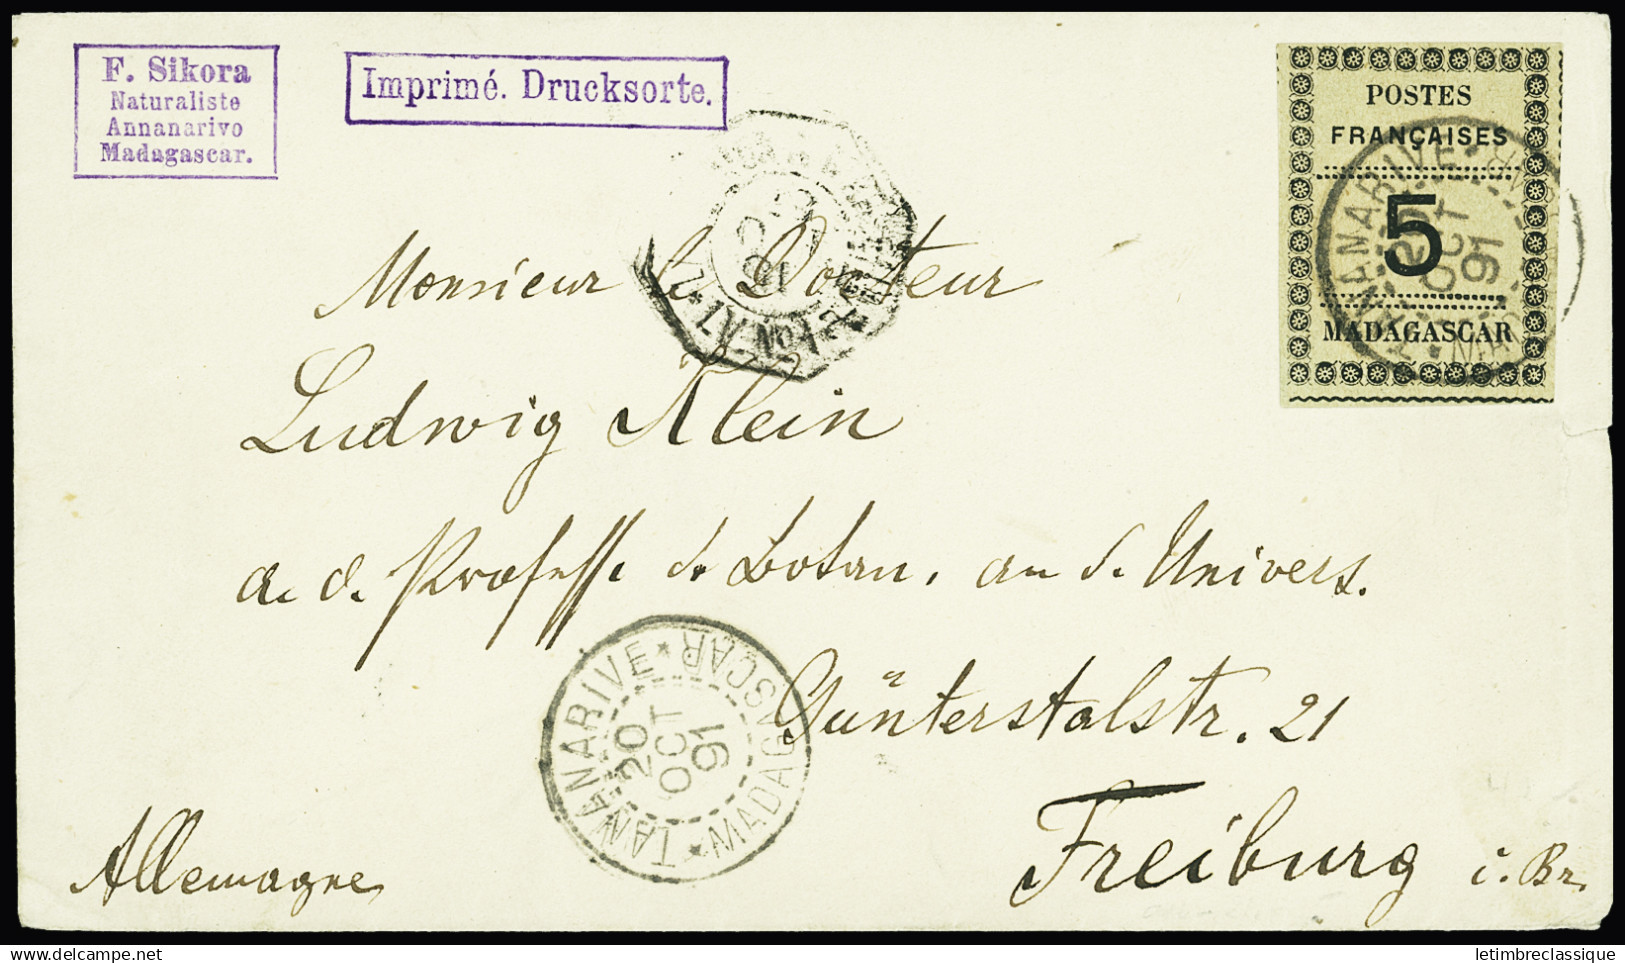 F. Sikora
Naturaliste
Annanarivo
Madagascar.
Imprimé. Drucksorte.
POSTES
FRANÇAISES
5
MADAGASCAR
TANANARIVE * MADAGASCAR *
20
OCT
91
Monsieur le Docteur
Ludwig Klein
a. d. Professe de botan. an d. Univers.
Günterstalstr. 21
Freiburg i. Br.
Allemagne
TANANARIVE * MADAGASCAR *
20
OCT
91
delcampe.net
letimbreclassique